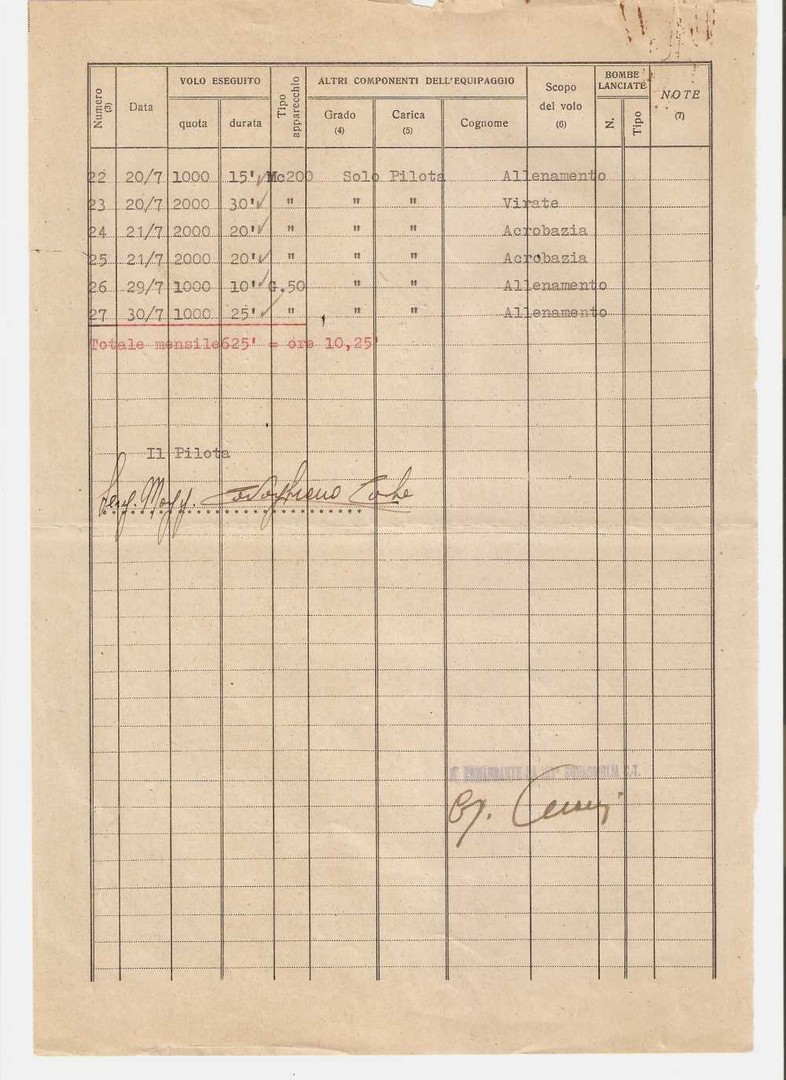 VOLO ESEGUITO ALTRI COMPONENTI DELL'EQUIPAGGIO BOMBE LANCIATE
Numero (3) Data quota durata Tipo apparecchio Grado (4) Carica (5) Cognome Scopo del volo (6) N. Tipo NOTE (7)
22 20/7 1000 15' Mc200 Solo Pilota Allenamento
23 20/7 2000 30' " " " Virate
24 21/7 2000 20' " " " Acrobazia
25 21/7 2000 20' " " " Acrobazia
26 29/7 1000 10' G.50 " " Allenamento
27 30/7 1000 25' " " " Allenamento
Totale mensile 625' = ore 10,25'
Il Pilota
Serg. Magg.
IL COMANDANTE LA SQUADRIGLIA C.T.